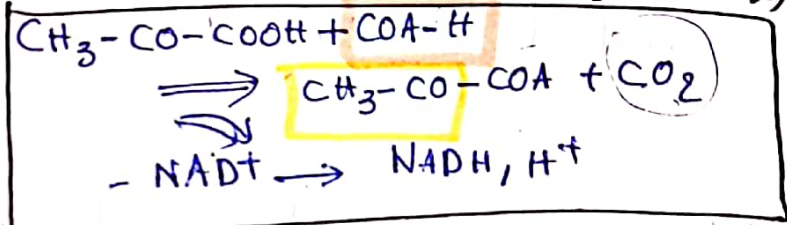 CH₃-CO-COOH + COA-H
⟹ CH₃-CO-COA + CO₂
- NAD+ → NADH, H⁺